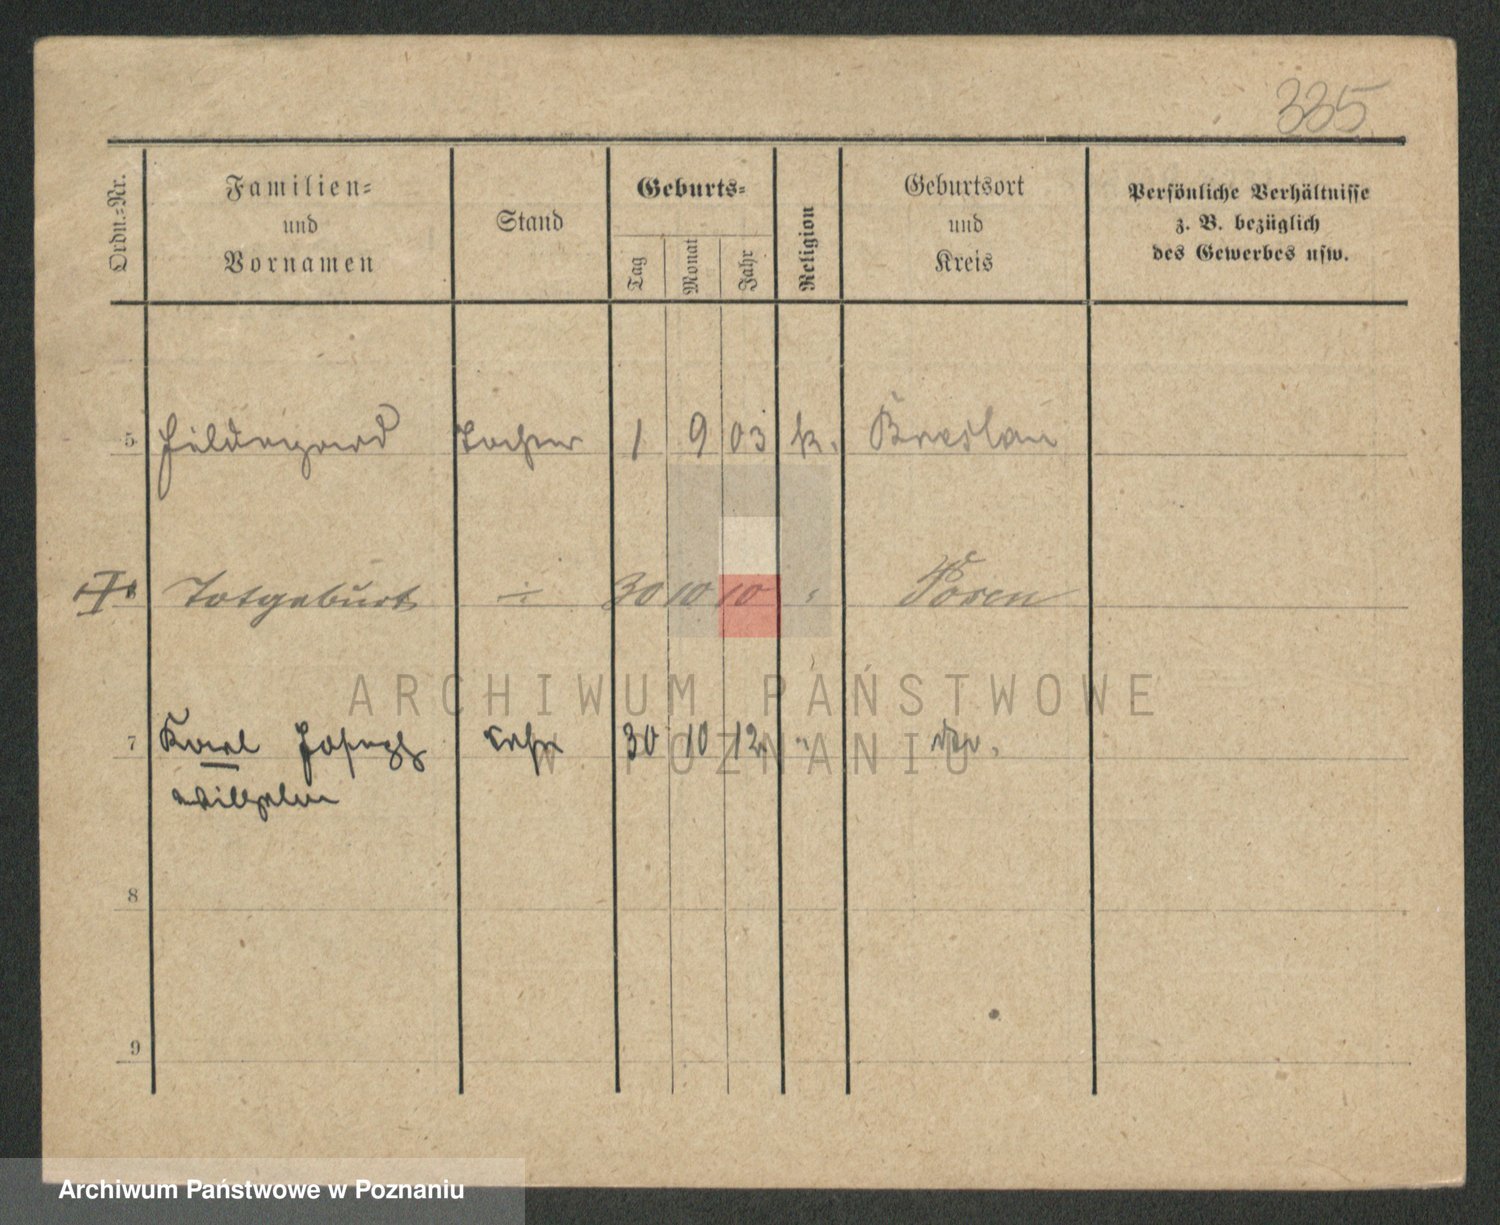 335
Ordn.-Nr.
Familien-
und
Vornamen
Stand
Geburts-
Tag
Monat
Jahr
Religion
Geburtsort
und
Kreis
Persönliche Verhältnisse
z. B. bezüglich
des Gewerbes usw.
5 Hildegard Tochter 1 9 03 k. Breslau
Totgeburt ÷ 30 10 10 " Posen
7 Karl Joseph Sohn 30 10 12 "
Wilhelm
8
9
ARCHIWUM PAŃSTWOWE
W POZNANIU
Archiwum Państwowe w Poznaniu